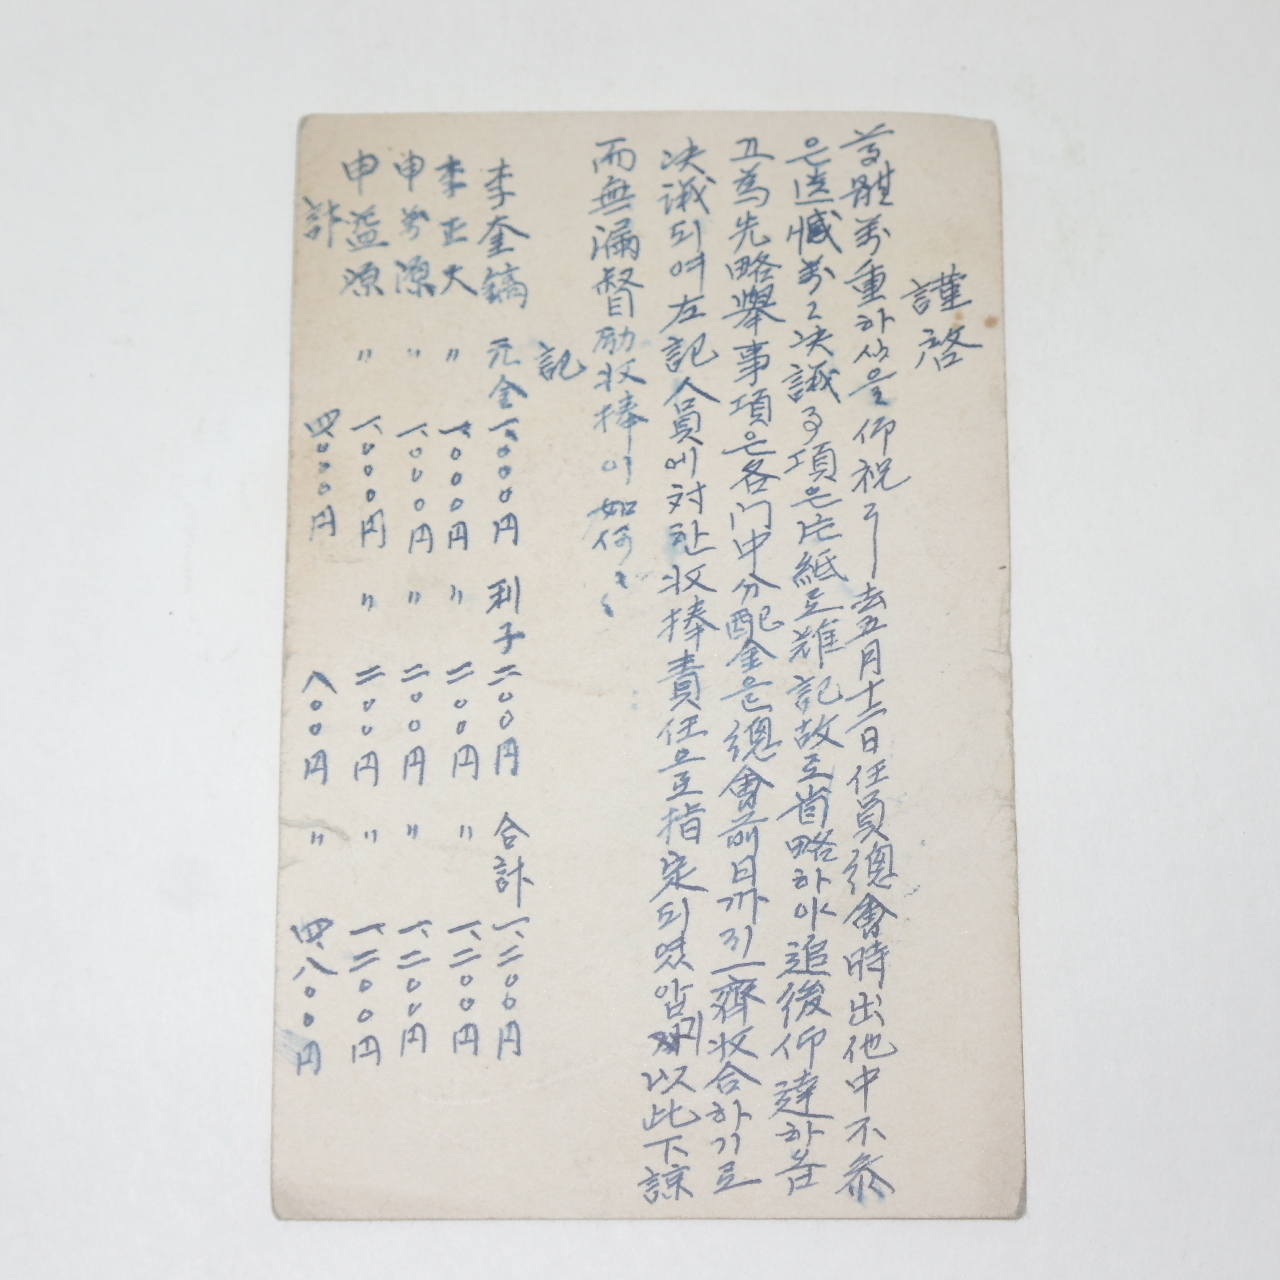 謹啓
尊體萬重하심을 仰祝 去五月十二日任員總會時出他中不參
은遺憾萬々決議事項은片紙로難記故로省略하야追後仰達하
고爲先略擧事項은各門中分配金은總會前日까지一齊收合하기로
決議되여左記人員에対한收捧責任으로指定되였압기以此下諒
而無漏督励收捧이如何
記
李奎鎬 元金 一、〇〇〇円 利子 二〇〇円 合計 一、二〇〇円
李正夫 〃 一、〇〇〇円 〃 二〇〇円 〃 一、二〇〇円
申萬源 〃 一、〇〇〇円 〃 二〇〇円 〃 一、二〇〇円
申益源 〃 一、〇〇〇円 〃 二〇〇円 〃 一、二〇〇円
計 四、〇〇〇円 八〇〇円 〃 四、八〇〇円